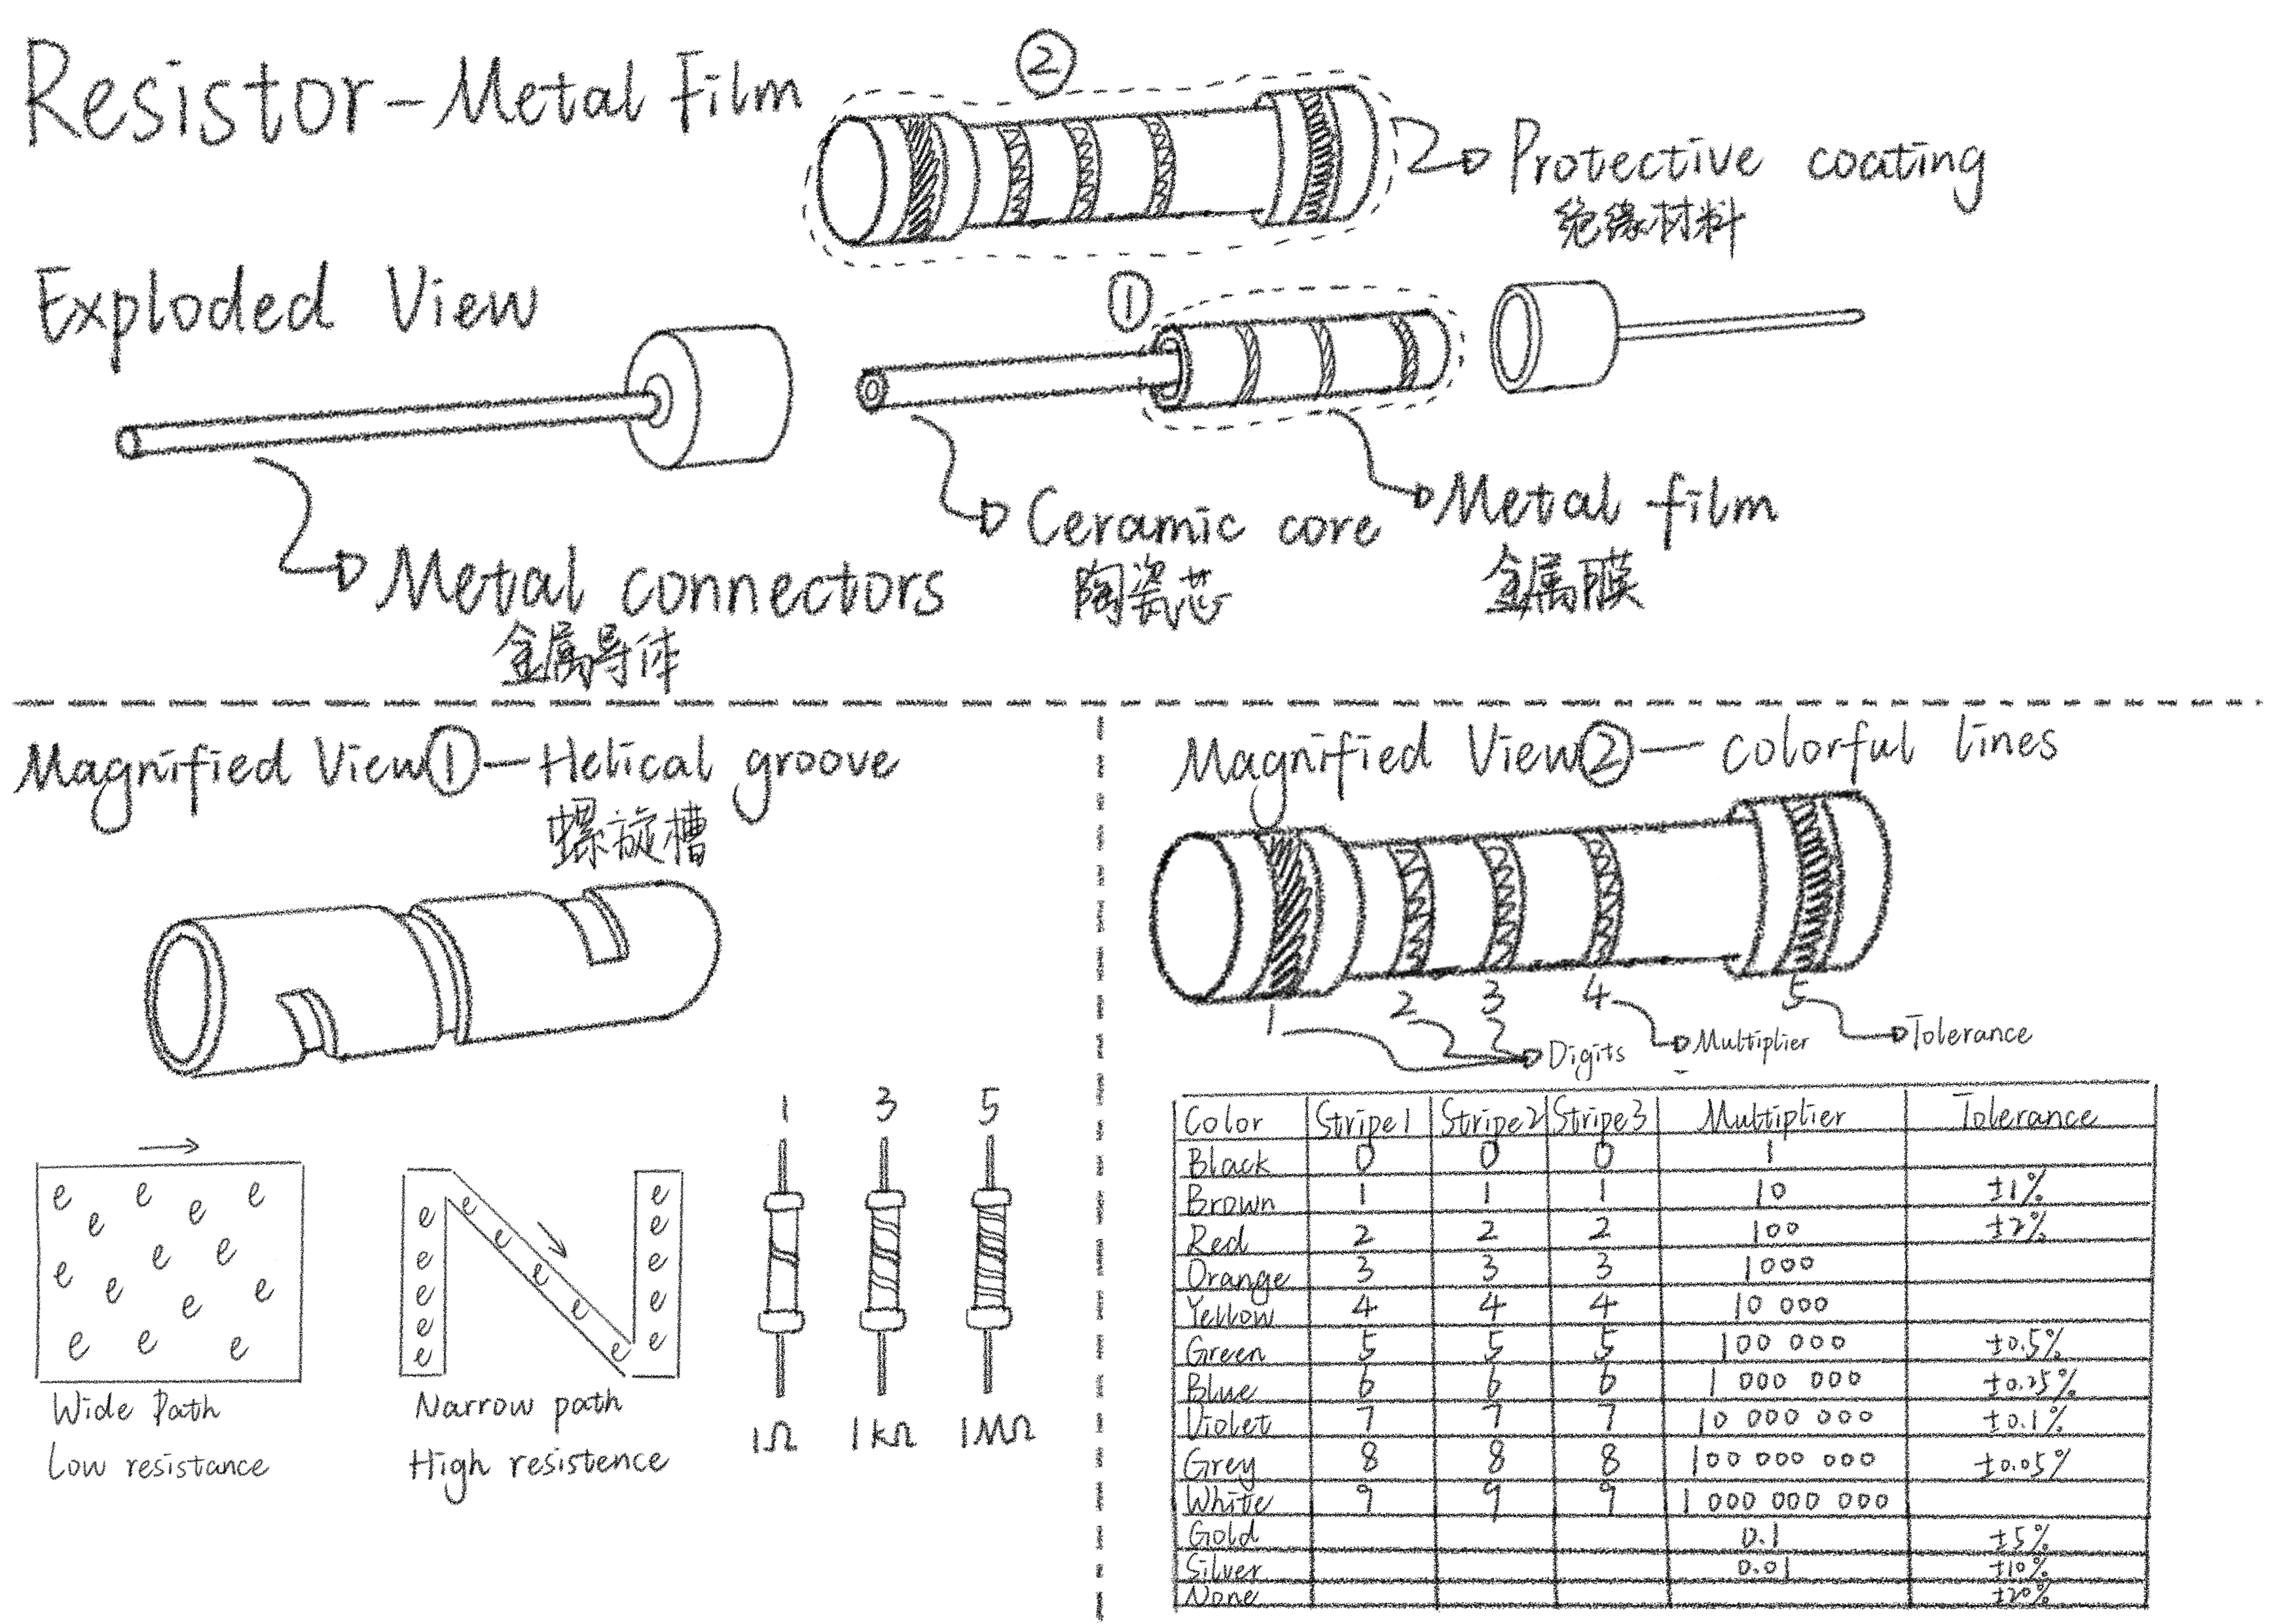 Resistor-Metal Film
②
Protective coating
绝缘材料
Exploded View
①
Metal connectors
金属导体
Ceramic core
陶瓷芯
Metal film
金属膜
Magnified View①—Helical groove
螺旋槽
→
e e e e e e e e e e e e e e e
Wide Path
Low resistance
→
e e e e e e e e e e e e e e e
Narrow path
High resistence
1 3 5
1Ω 1kΩ 1MΩ
Magnified View②— Colorful lines
1 2 3 4 5
Digits Multiplier Tolerance
Color Stripe1 Stripe2 Stripe3 Multiplier Tolerance
Black 0 0 0 1
Brown 1 1 1 10 ±1%
Red 2 2 2 100 ±2%
Orange 3 3 3 1000
Yellow 4 4 4 10 000
Green 5 5 5 100 000 ±0.5%
Blue 6 6 6 1 000 000 ±0.25%
Violet 7 7 7 10 000 000 ±0.1%
Grey 8 8 8 100 000 000 ±0.05%
White 9 9 9 1 000 000 000
Gold 0.1 ±5%
Silver 0.01 ±10%
None ±20%